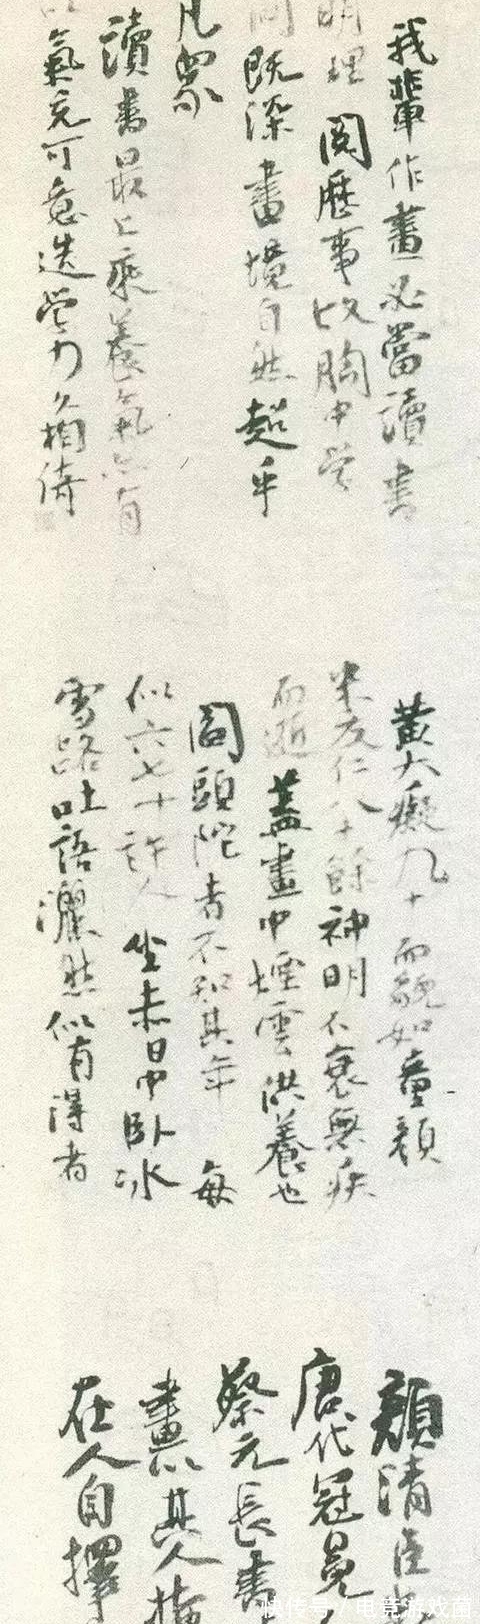 我輩作畫必當讀書
明理閱歷事故胸中學
問既深畫境自然超乎
凡衆
讀書最上乘養氣亦有
以氣充可意造學力久相倚
黃大癡九十而貌如童顏
米友仁八十餘神明不衰無疾
而逝蓋畫中煙雲洪養也
閻頭陀者不知其年每
似六七十許人坐赤日中臥冰
雪路吐語灑然似有得者
顏清臣
唐代冠冕
蔡元長書
畫以其人掩
在人自擇
快传号/电竞游戏菌